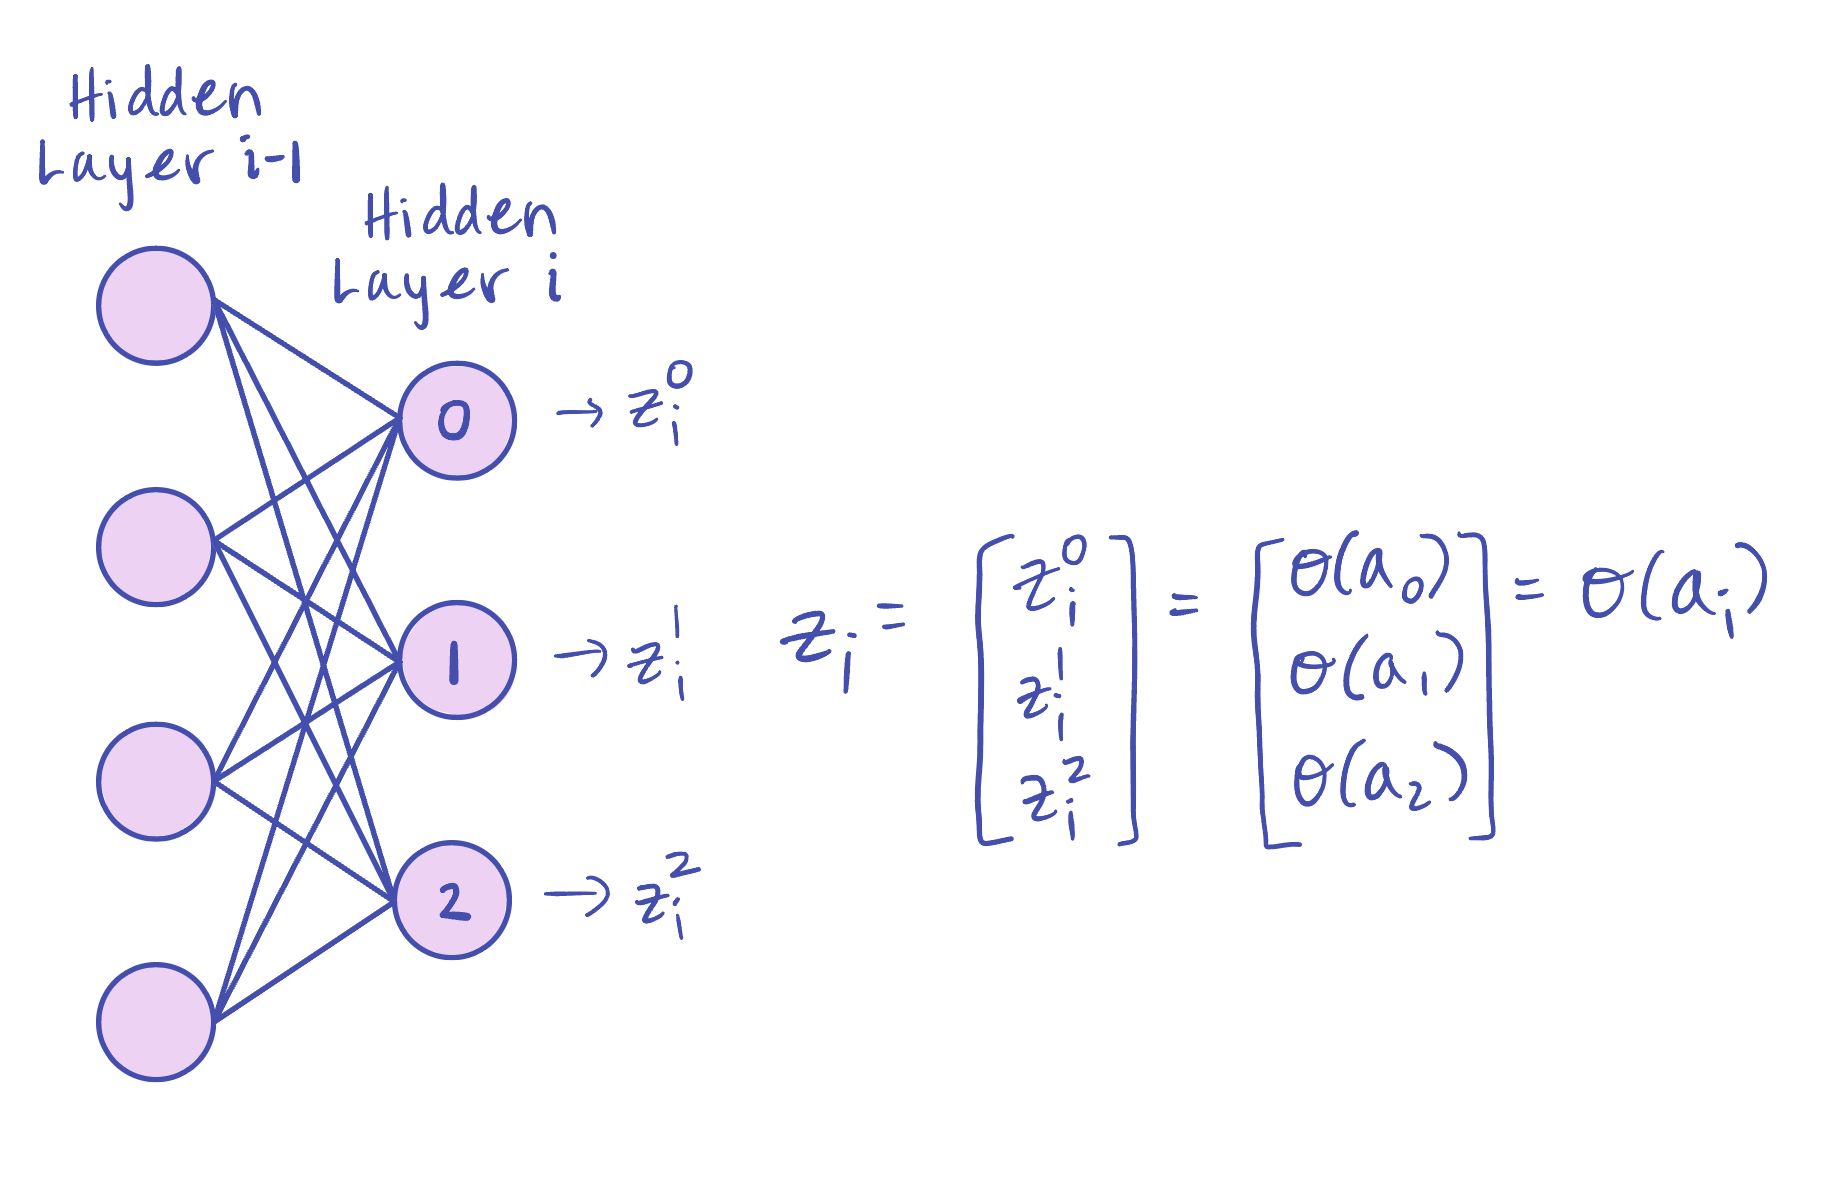 Hidden
Layer i-1
Hidden
Layer i
0 → z_i^0
1 → z_i^1
2 → z_i^2
z_i = [z_i^0 z_i^1 z_i^2] = [σ(a_0) σ(a_1) σ(a_2)] = σ(a_i)